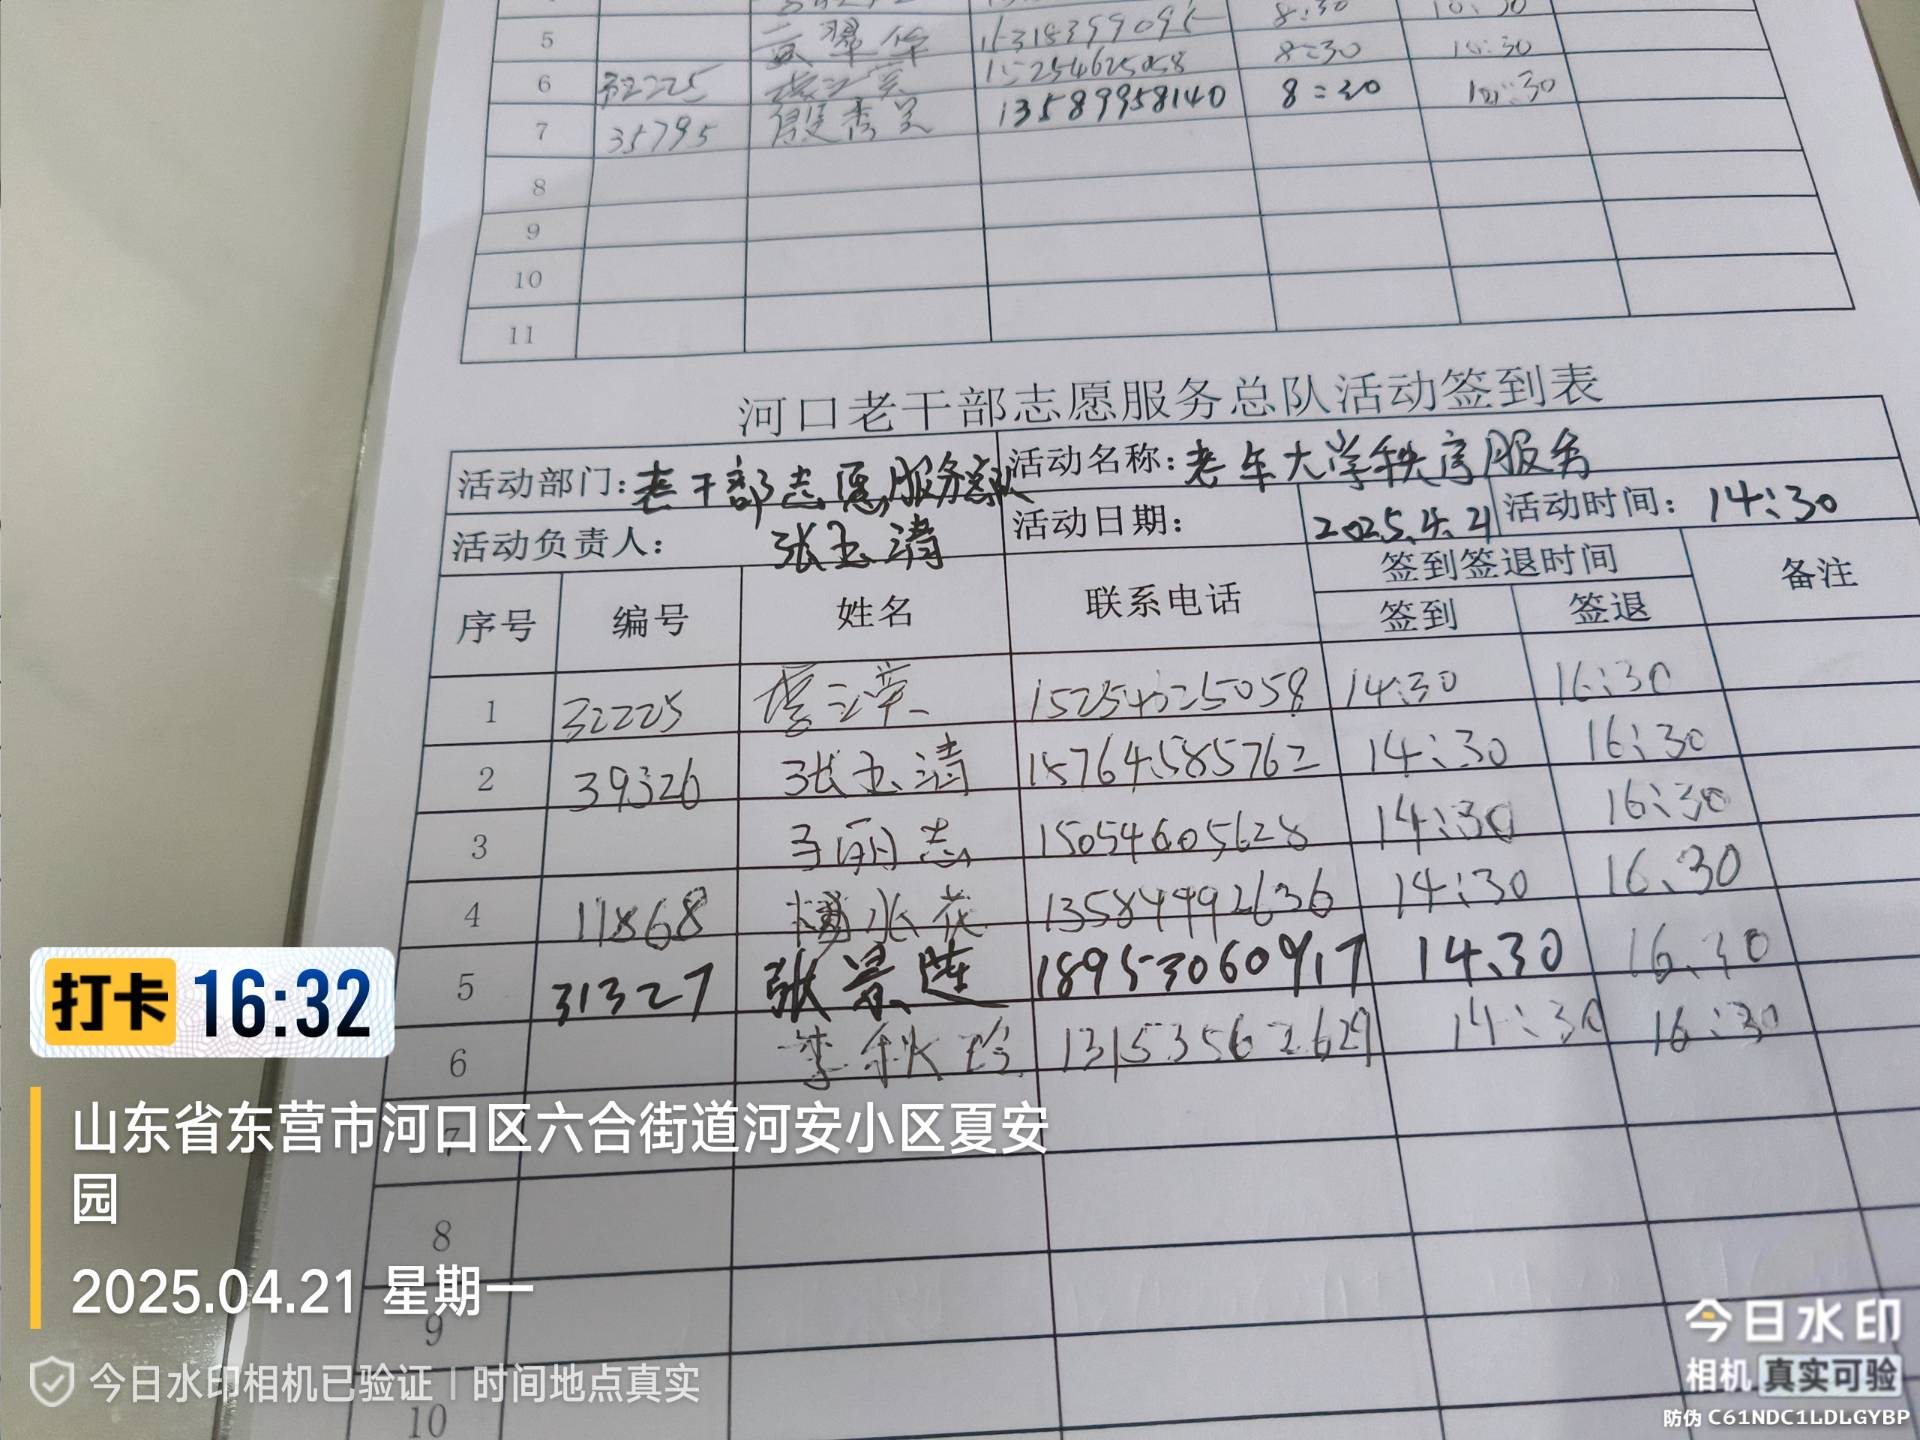 5 8:30
6 32225 15254625058 8:30 10:30
7 35795 殷秀美 13589958140 8:30 10:30
8
9
10
11
河口老干部志愿服务总队活动签到表
活动部门:老干部志愿服务总队 活动名称:老年大学秩序服务
活动负责人: 张玉清 活动日期: 2025.4.21 活动时间: 14:30
签到签退时间
序号 编号 姓名 联系电话 签到 签退 备注
1 32225 15254625058 14:30 16:30
2 39326 张玉清 15764585762 14:30 16:30
3 15054605628 14:30 16:30
4 11868 14:30 16.30
5 31327 张景莲 18953060917 14.30 16.30
6 李秋玲 13153562629 14:30 16:30
7
8
9
10
打卡 16:32
山东省东营市河口区六合街道河安小区夏安
园
2025.04.21 星期一
今日水印相机已验证 时间地点真实
今日水印
相机 真实可验
防伪 C61NDC1LDLGYBP